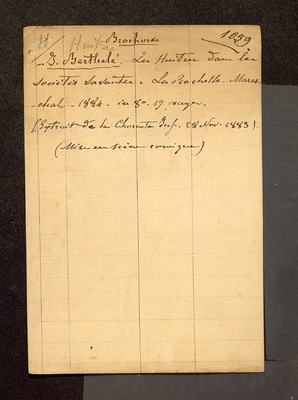 Huitres Brochures 1059
J. Berthelé. Les Huitres dans les
sociétés savantes. La Rochelle. Mares-
chal. 1884. in 8o. 19 pages.
(Extrait de la Charente Inf. 28 Nov. 1883).
(Mise en scène comique)